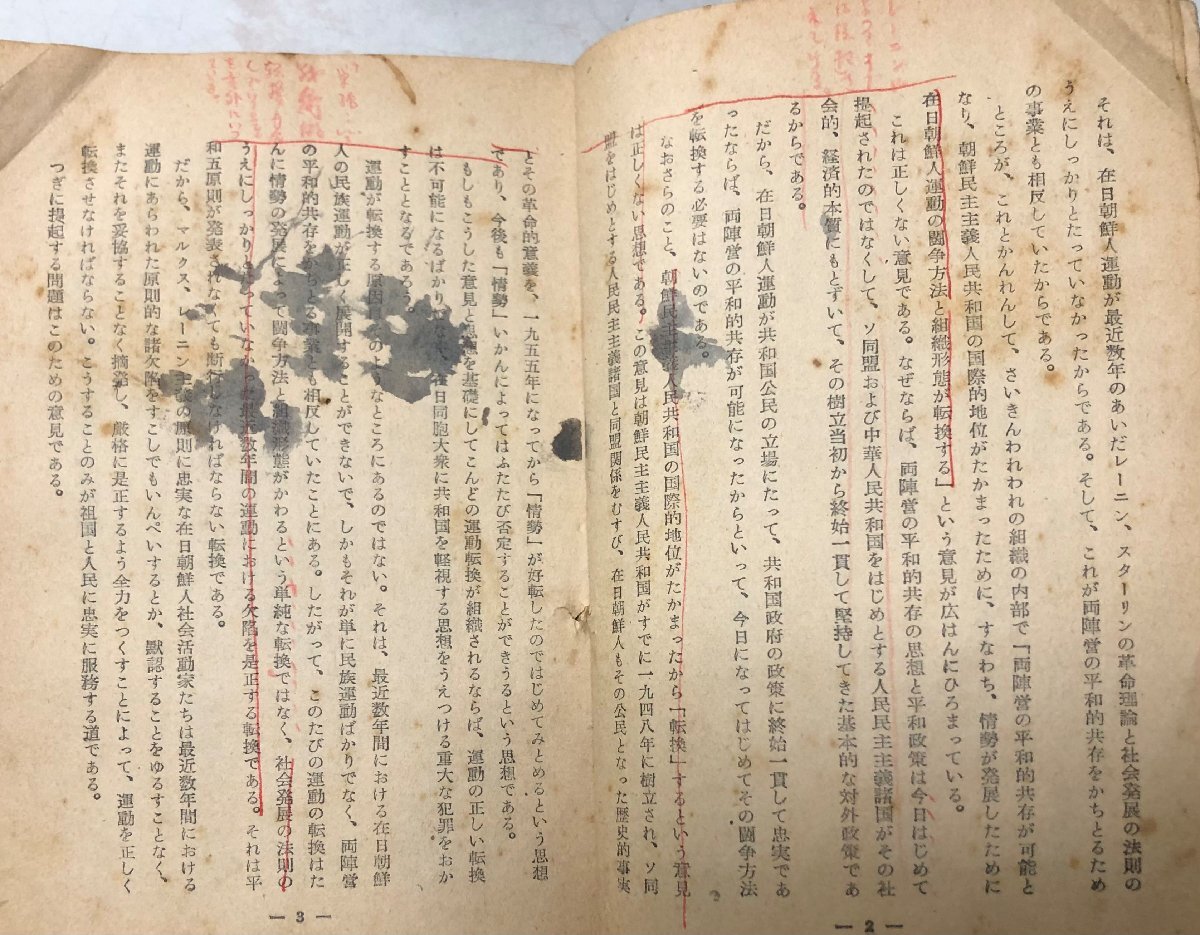 それは、在日朝鮮人運動が最近数年のあいだレーニン、スターリンの革命理論と社会発展の法則の
うえにしっかりとたっていなかったからである。そして、これが両陣営の平和的共存をかちとるため
の事業とも相反していたからである。
ところが、これとかんれんして、さいきんわれわれの組織の内部で「両陣営の平和的共存が可能と
なり、朝鮮民主主義人民共和国の国際的地位がたかまったために、すなわち、情勢が発展したために
在日朝鮮人運動の闘争方法と組織形態が転換する」という意見が広はんにひろまっている。
これは正しくない意見である。なぜならば、両陣営の平和的共存の思想と平和政策は今日はじめて
提起されたのではなくして、ソ同盟および中華人民共和国をはじめとする人民民主主義諸国がその社
会的、経済的本質にもとずいて、その樹立当初から終始一貫して堅持してきた基本的な対外政策であ
るからである。
だから、在日朝鮮人運動が共和国公民の立場にたって、共和国政府の政策に終始一貫して忠実であ
ったならば、両陣営の平和的共存が可能になったからといって、今日になってはじめてその闘争方法
を転換する必要はないのである。
なおさらのこと、朝鮮民主主義人民共和国の国際的地位がたかまったから「転換」するという意見
は正しくない思想である。この意見は朝鮮民主主義人民共和国がすでに一九四八年に樹立され、ソ同
盟をはじめとする人民民主主義諸国と同盟関係をむすび、在日朝鮮人もその公民となった歴史的事実
— 2 —
とその革命的意義を、一九五五年になってから「情勢」が好転したのではじめてみとめるという思想
であり、今後も「情勢」いかんによってはふたたび否定することができうるという思想である。
もしもこうした意見と思想を基礎にしてこんどの運動転換が組織されるならば、運動の正しい転換
は不可能になるばかりでなく、在日同胞大衆に共和国を軽視する思想をうえつける重大な犯罪をおか
すこととなるであろう。
運動が転換する原因はそのようなところにあるのではない。それは、最近数年間における在日朝鮮
人の民族運動が正しく展開することができないで、しかもそれが単に民族運動ばかりでなく、両陣営
の平和的共存をかちとる事業とも相反していたことにある。したがって、このたびの運動の転換はた
んに情勢の発展によって闘争方法と組織形態がかわるという単純な転換ではなく、社会発展の法則の
うえにしっかりとたっていなかった最近数年間の運動における欠陥を是正する転換である。それは平
和五原則が発表されなくても断行しなければならない転換である。
だから、マルクス、レーニン主義の原則に忠実な在日朝鮮人社会活動家たちは最近数年間における
運動にあらわれた原則的な諸欠陥をすこしでもいんぺいするとか、黙認することをゆるすことなく、
またそれを妥協することなく摘発し、厳格に是正するよう全力をつくすことによって、運動を正しく
転換させなければならない。こうすることのみが祖国と人民に忠実に服務する道である。
つぎに提起する問題はこのための意見である。
— 3 —